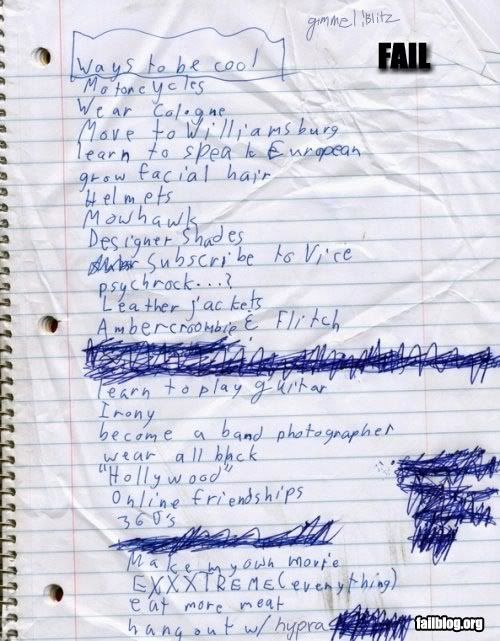 gimmel!Blitz
FAIL
Ways to be cool
Motorcycles
Wear Cologne
Move to Williamsburg
learn to speak European
grow facial hair
Helmets
Mowhawk
Designer Shades
Subscribe to Vice
psychrock...?
Leather jackets
Ambercroombie & Flitch
learn to play guitar
Irony
become a band photographer
wear all back
"Hollywood"
Online friendships
360's
Make my own movie
EXXXTREME (everything)
eat more meat
hang out w/ hypra
failblog.org